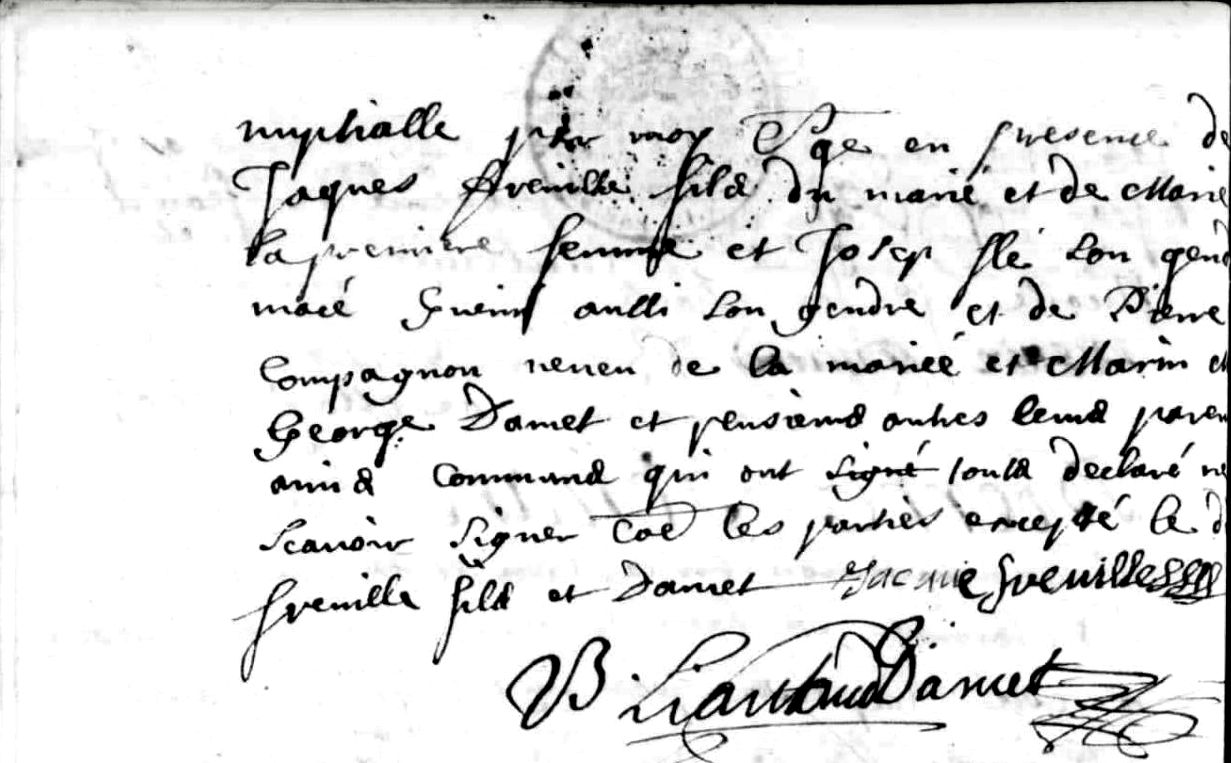 nuptialle par moy en presence de
Jaques freuille fils du marié et de Marie
la premiere femme et Josep flé son gend
macé aussi son gendre et de Pierre
Compagnon neueu de la mariée et Marin et
George Damet et plusieurs autres leurs paren
amis Communs qui ont signé tous declaré ne
scauoir signer les parties excepté le d
freuille fils et Damet Jacque freuille
Damet